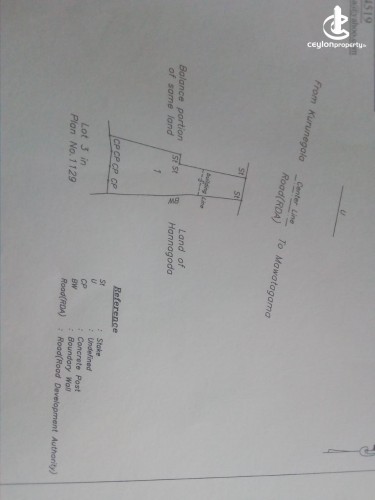 ceylonproperty.lk
4519
U
From Kurunegala
Center Line
Road(RDA)
To Mawatagama
St
St
Building Line
St St
1
BW
Balance portion
of same land
Land of
Hannagoda
CP CP CP CP
Lot 3 in
Plan No.1129
Reference
St : Stake
U : Undefined
CP : Concrete Post
BW : Boundary Wall
Road(RDA) : Road(Road Development Authority)